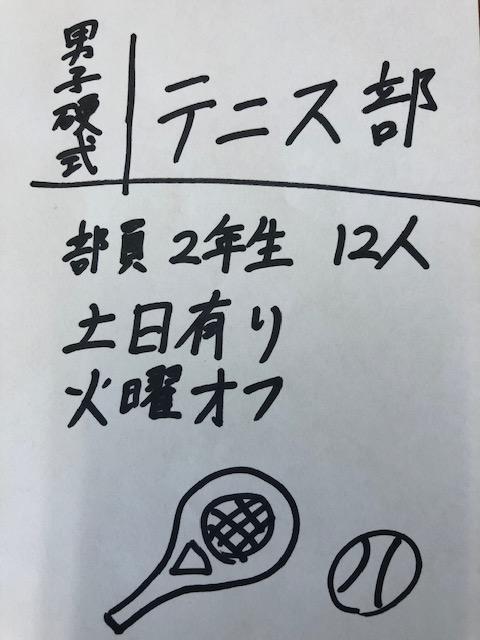 男子硬式
テニス部
部員 2年生 12人
土日有り
火曜オフ